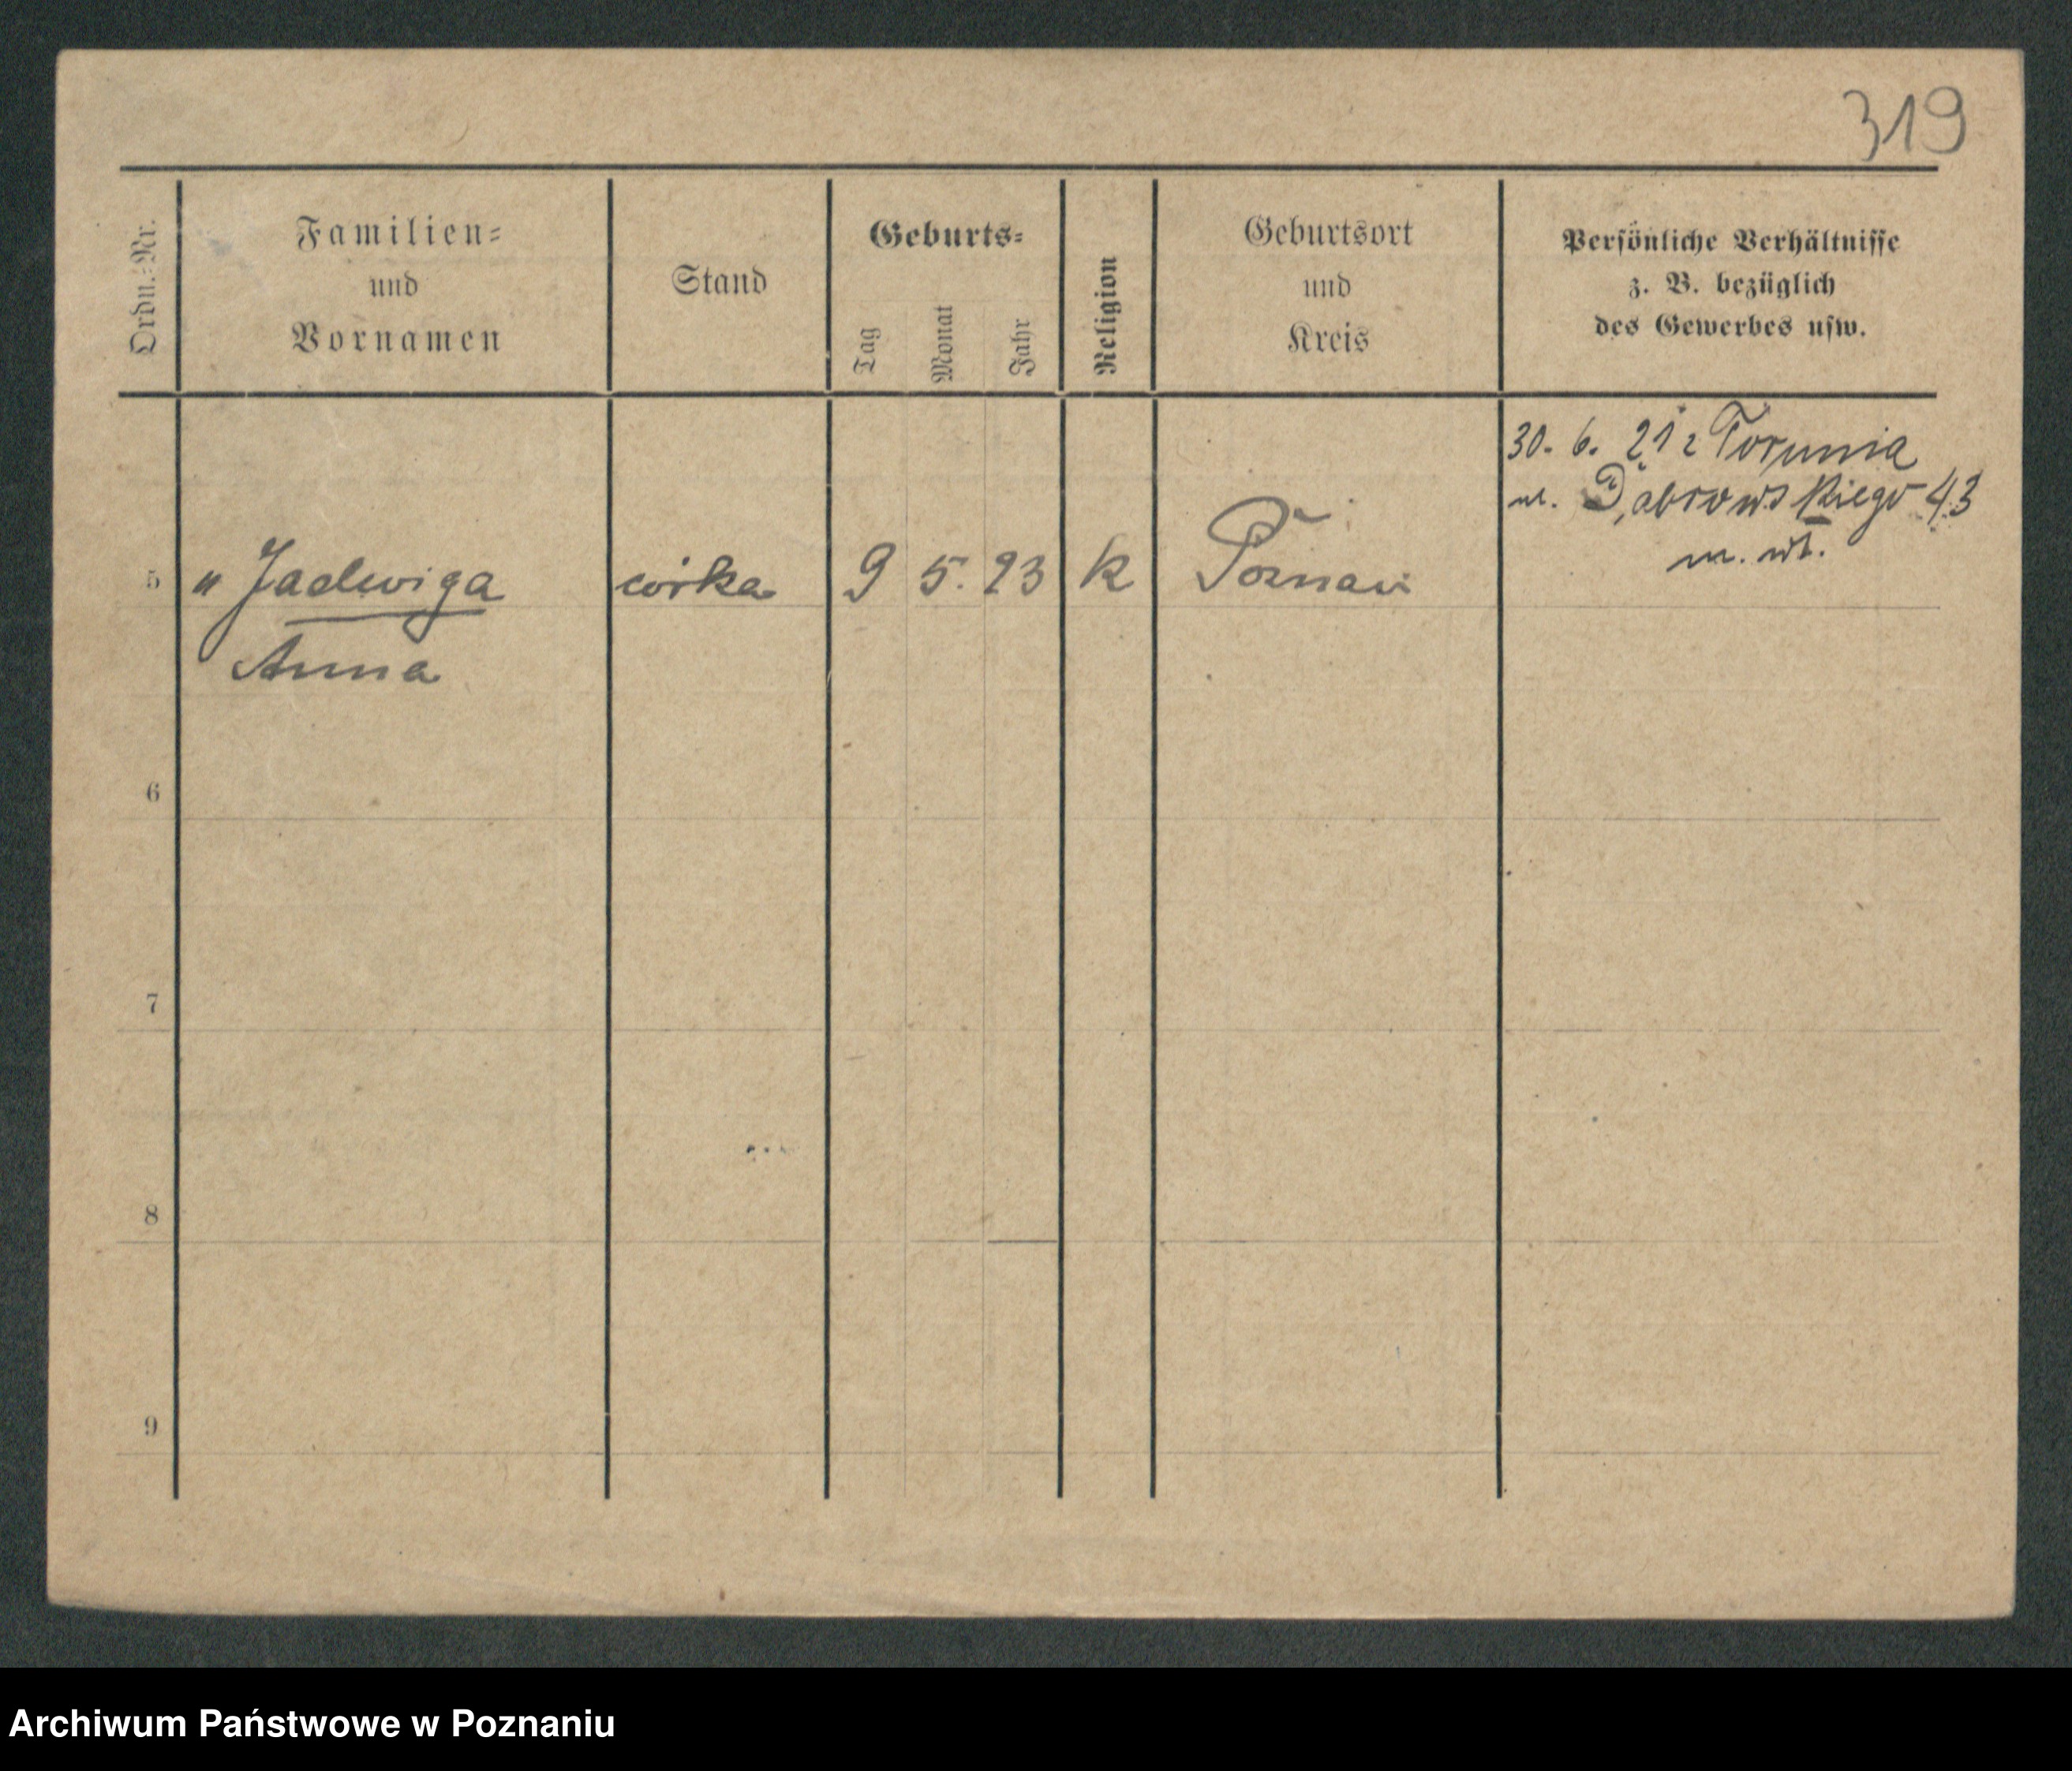 319
Ordn.-Nr.
Familien-
und
Vornamen
Stand
Geburts-
Tag
Monat
Jahr
Religion
Geburtsort
und
Kreis
Persönliche Verhältnisse
z. B. bezüglich
des Gewerbes usw.
30. 6. 21 z Torunia
ul. Dąbrowskiego 43
m. wł.
5 " Jadwiga córka 9 5. 23 k Poznań
Anna
6
7
8
9
Archiwum Państwowe w Poznaniu